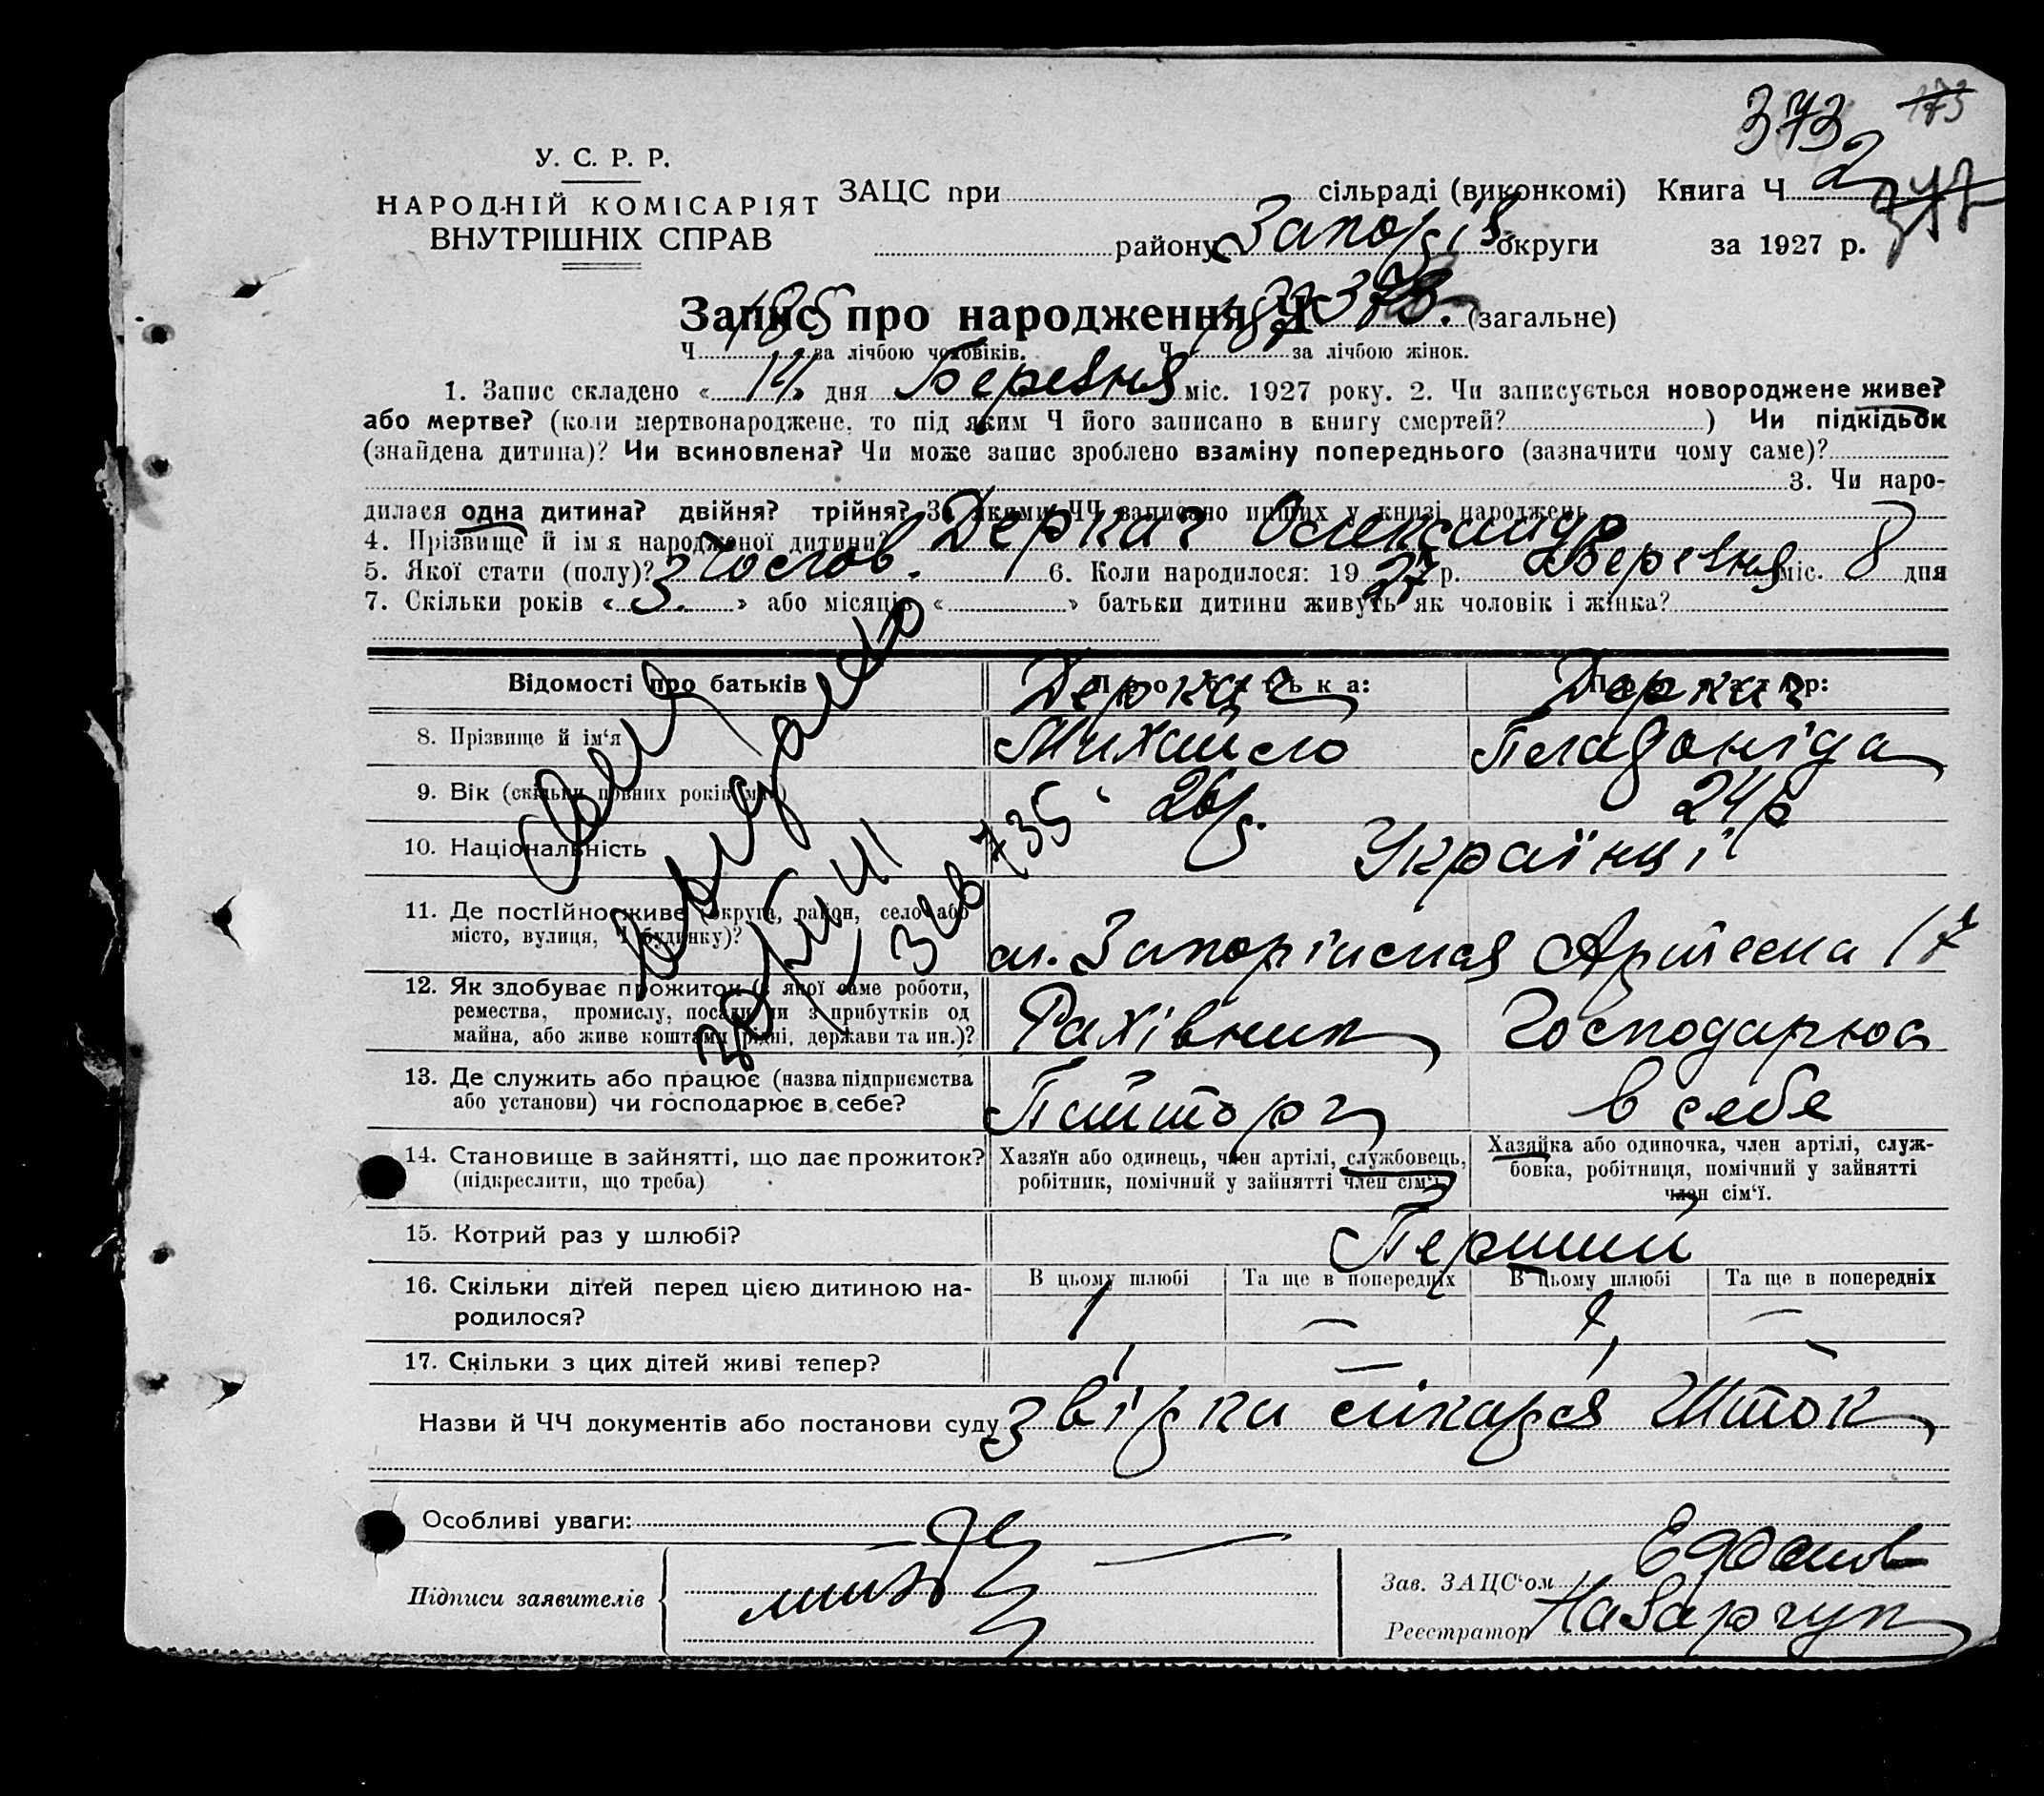 373 173
У. С. Р. Р.
НАРОДНІЙ КОМІСАРІЯТ
ВНУТРІШНІХ СПРАВ
ЗАЦС при сільраді (виконкомі) Книга Ч 2
377
району Запоріз округи за 1927 р.
Запис про народження Ч 373. (загальне)
Ч 185 за лічбою чоловіків. Ч за лічбою жінок.
1. Запис складено « 14 » дня Березня міс. 1927 року. 2. Чи записується новороджене живе?
або мертве? (коли мертвонароджене, то під яким Ч його записано в книгу смертей? ) Чи підкідьок
(знайдена дитина)? Чи всиновлена? Чи може запис зроблено взаміну попереднього (зазначити чому саме)?
3. Чи наро-
дилася одна дитина? двійня? трійня? За якими ЧЧ записано инших у книзі народжень
4. Прізвище й ім'я народженої дитини? Деркач Олександр
5. Якої стати (полу)? Чоловв. 6. Коли народилося: 19 27 р. Березня міс. 8 дня
7. Скільки років « 3. » або місяців « » батьки дитини живуть як чоловік і жінка?
Відомості про батьків Про батька: Про матір:
Деркач Деркач
8. Прізвище й ім'я Михайло
9. Вік (скільки повних років має) 26 р. 24 р
10. Національність Українці
11. Де постійно живе (округа, район, село або
місто, вулиця, Ч будинку)? м. Запоріжжя Артема 17
12. Як здобуває прожиток (з якої саме роботи,
ремества, промислу, посади чи з прибутків од
майна, або живе коштами рідні, держави та ин.)? Рахівник Господарює
13. Де служить або працює (назва підприємства
або установи) чи господарює в себе? Пайторг в себе
14. Становище в зайнятті, що дає прожиток?
(підкреслити, що треба)
Хазяїн або одинець, член артілі, службовець,
робітник, помічний у зайнятті член сім'ї
Хазяйка або одиночка, член артілі, служ-
бовка, робітниця, помічний у зайнятті
член сім'ї.
15. Котрий раз у шлюбі? Перший
16. Скільки дітей перед цією дитиною на-
родилося?
В цьому шлюбі Та ще в попередніх В цьому шлюбі Та ще в попередніх
1 — 1 —
17. Скільки з цих дітей живі тепер? 1 — 1 —
Назви й ЧЧ документів або постанови суду Звірка лікаря Шток
Особливі уваги:
Підписи заявителів
Зав. ЗАЦС'ом
Реєстратор Назарчук